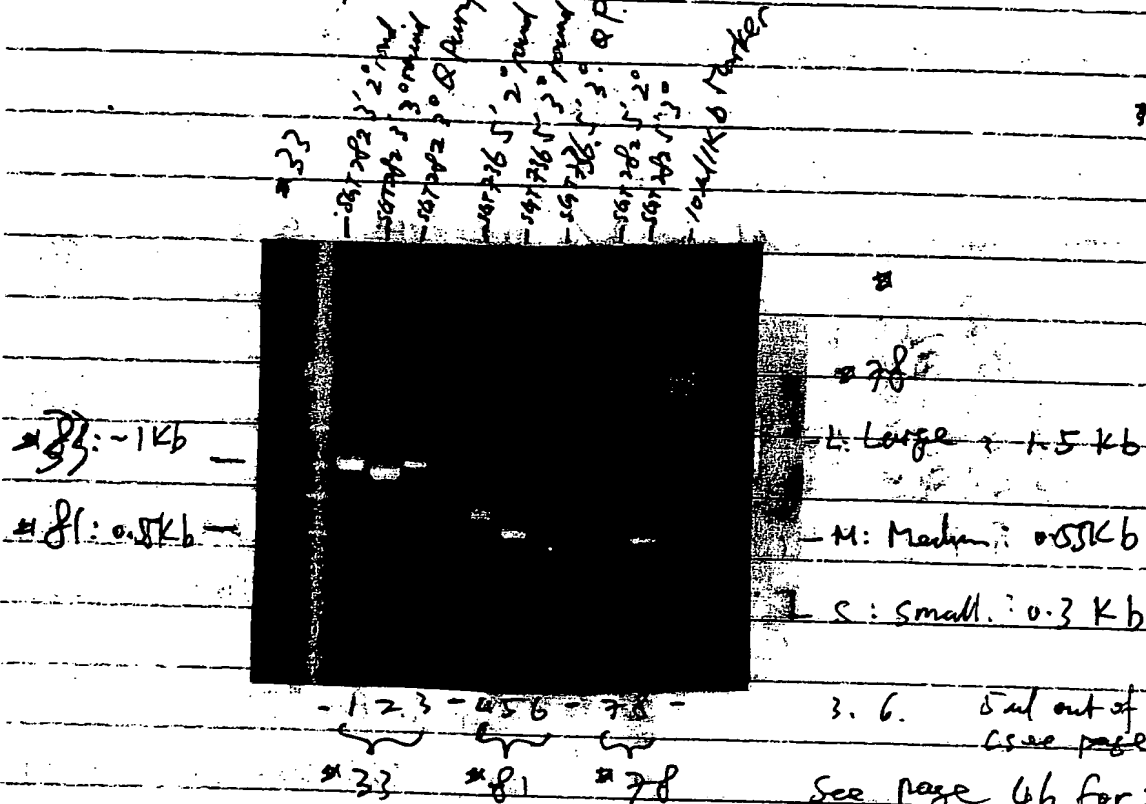 *33
-SGT282 3' 2° round
-SGT282 3' 3° round
-SGT282 3° Q Purif
-SGT736 5' 2° round
-SGT736 5' 3° round
-SGT736 5' 3° Q P.
-SGT282 5' 2°
-SGT282 5' 3°
-10ul 1Kb Marker
*78
33: ~1Kb
L: Large : 1.5 Kb
*81: 0.5Kb
M: Medium: 0.55Kb
S: Small: 0.3 Kb
- 1 2 3 - 4 5 6 - 7 8 -
*33 *81 *78
3. 6. 5ul out of
(see page
See page for